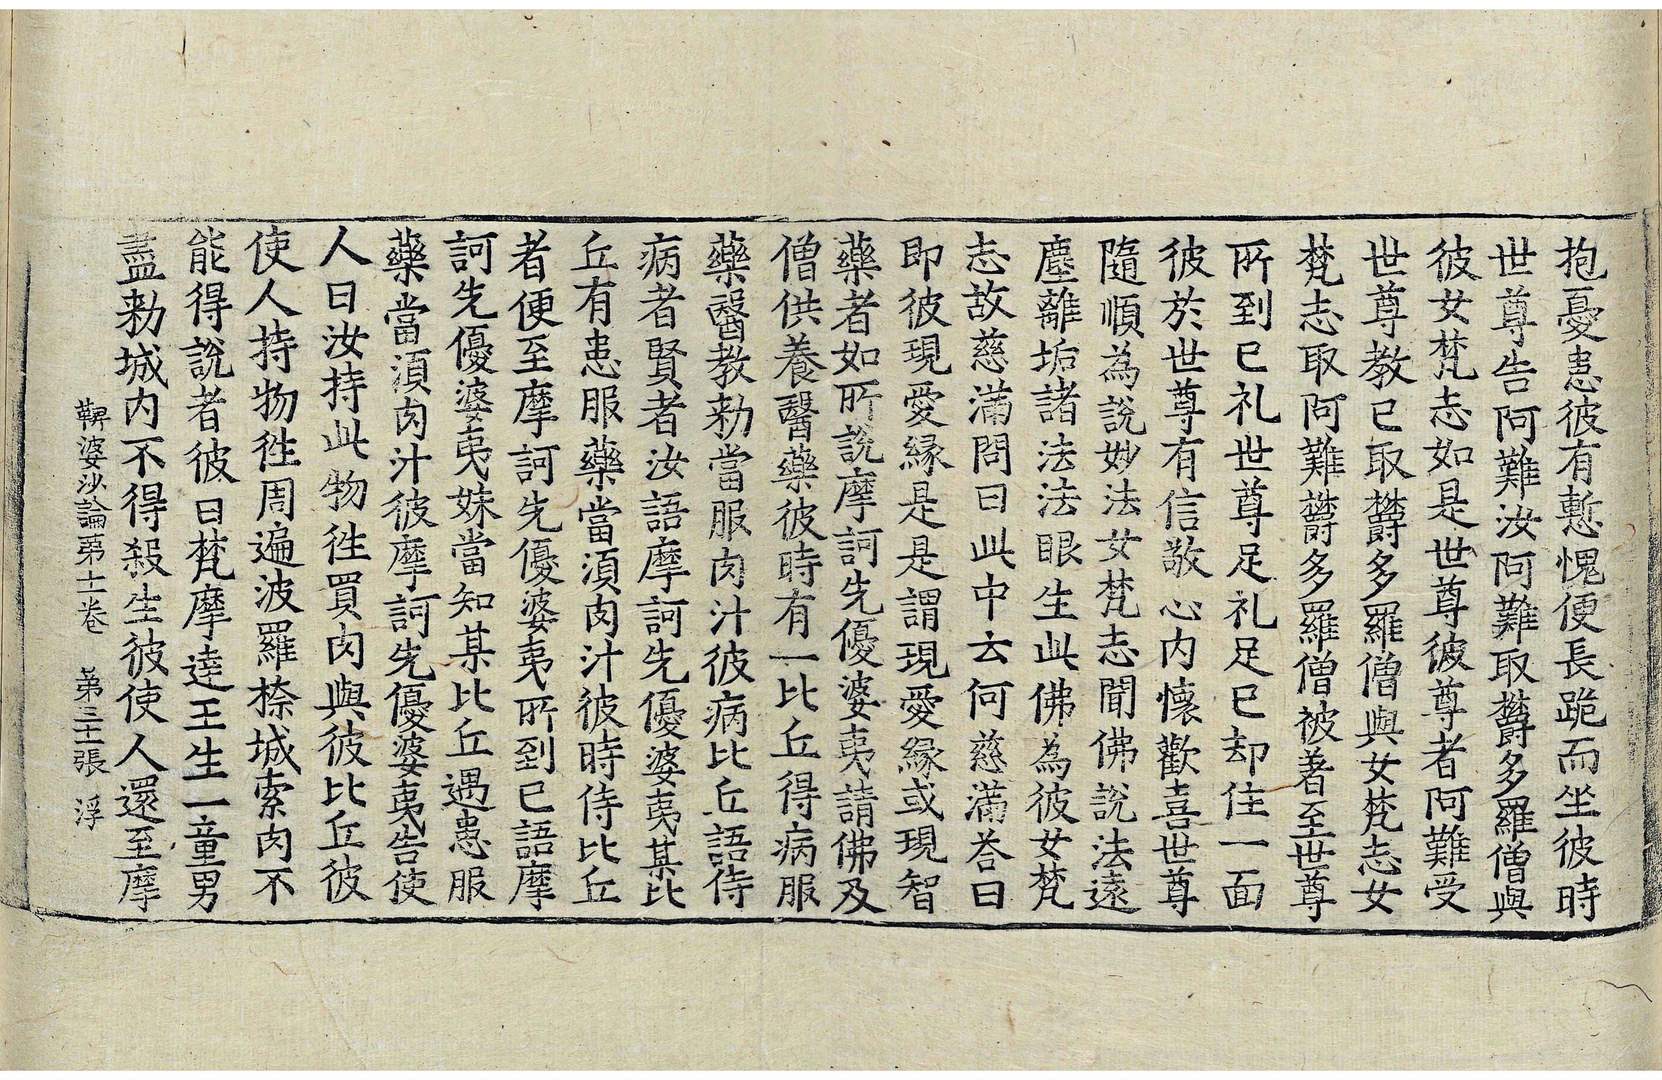 抱憂恚彼有慙愧便長跪而坐彼時
世尊告阿難汝阿難取欝多羅僧與
彼女梵志如是世尊彼尊者阿難受
世尊教已取欝多羅僧與女梵志女
梵志取阿難欝多羅僧被著至世尊
所到已礼世尊足礼足已却住一面
彼於世尊有信敬心内懷歡喜世尊
隨順為說妙法女梵志聞佛說法遠
塵離垢諸法法眼生此佛為彼女梵
志故慈滿問曰此中云何慈滿荅曰
即彼現愛緣是是謂現愛緣或現智
藥者如所說摩訶先優婆夷請佛及
僧供養醫藥彼時有一比丘得病服
藥醫教勑當服肉汁彼病比丘語侍
病者賢者汝語摩訶先優婆夷某比
丘有患服藥當須肉汁彼時侍比丘
者便至摩訶先優婆夷所到已語摩
訶先優婆夷妹當知某比丘遇患服
藥當須肉汁彼摩訶先優婆夷告使
人曰汝持此物徃買肉與彼比丘彼
使人持物徃周遍波羅㮈城索肉不
能得說者彼曰梵摩達王生一童男
盡勑城内不得殺生彼使人還至摩
鞞婆沙論第十一卷 第三十一張 浮